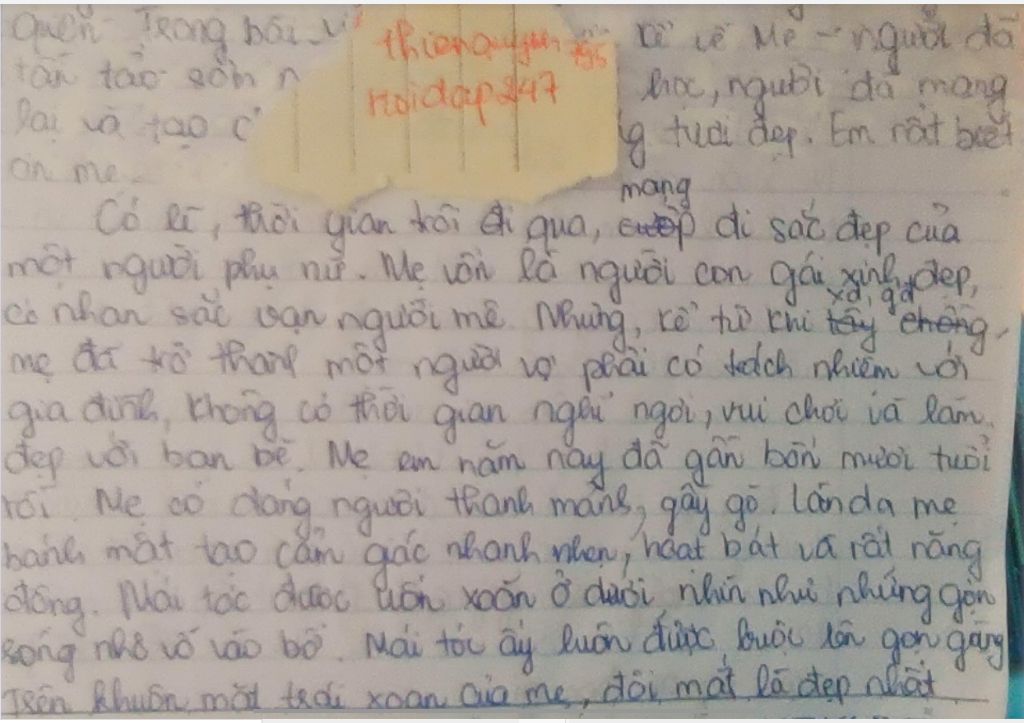 quên. Trong bài kể về Mẹ - người đã
thienquyen
tần tảo sớm học, người đã mang
Hoidap247
lại và tạo tươi đẹp. Em rất biết
ơn mẹ.
mang
Có lẽ, thời gian trôi đi qua, cướp đi sắc đẹp của
một người phụ nữ. Mẹ vốn là người con gái xinh đẹp,
xd, gđ
có nhan sắc vạn người mê. Nhưng, kể từ khi lấy chồng,
mẹ đã trở thành một người vợ phải có trách nhiệm với
gia đình, không có thời gian nghỉ ngơi, vui chơi và làm
đẹp với bạn bè. Mẹ em năm nay đã gần bốn mươi tuổi
rồi. Mẹ có dáng người thanh mảnh, gầy gò. Làn da mẹ
bánh mật tạo cảm giác nhanh nhẹn, hoạt bát và rất năng
động. Mái tóc được uốn xoăn ở dưới nhìn như những gợn
sóng nhỏ vỗ vào bờ. Mái tóc ấy luôn được buộc lên gọn gàng
Trên khuôn mặt trái xoan của mẹ, đôi mắt là đẹp nhất